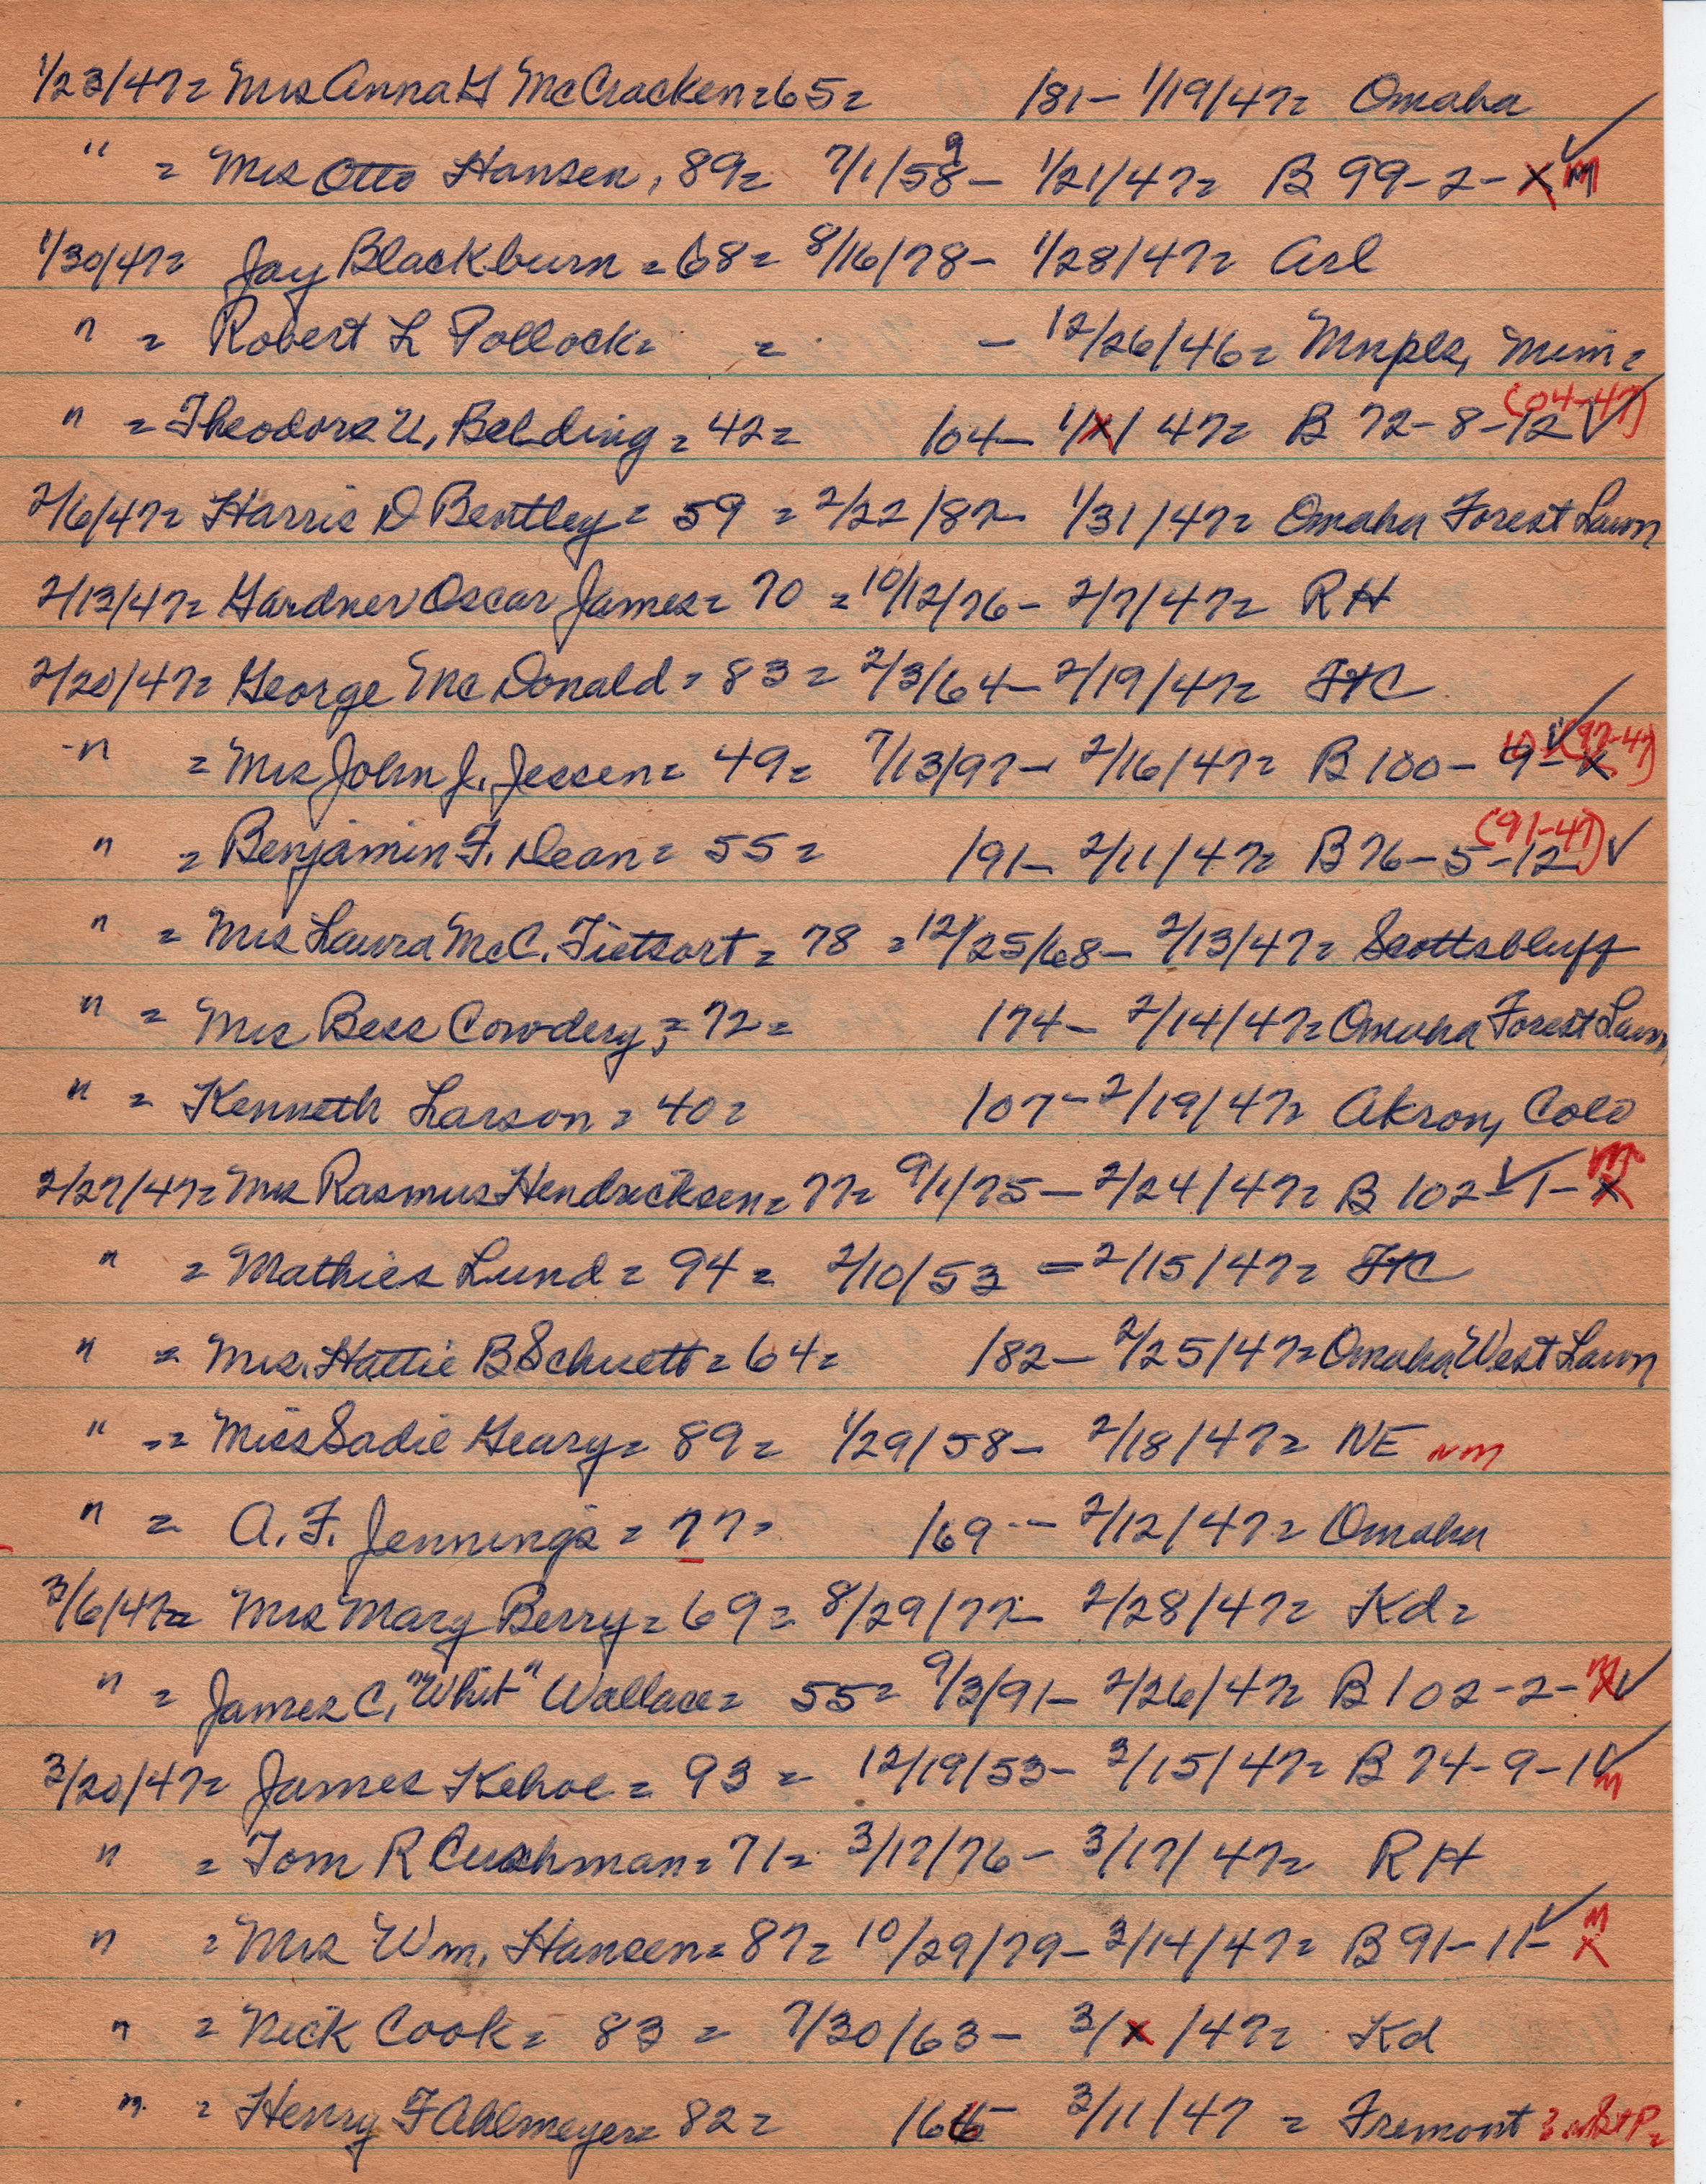 1/23/47= Mrs Anna G McCracken=65= /81- 1/19/47= Omaha
" = Mrs Otto Hansen, 89= 7/1/58 9 - 1/21/47= B 99-2-X M ✓
1/30/47= Jay Blackburn =68= 8/16/78- 1/28/47= Arl
" = Robert L Pollock= = - 12/26/46= Mnpls, Minn=
" = Theodore U, Belding = 42= /04- 1/X/47= B 72-8-12 ✓ (04-47)
2/6/47= Harris D Bentley = 59 = 2/22/87- 1/31/47= Omaha Forest Lawn
2/13/47= Gardner Oscar James= 70 = 10/12/76- 2/7/47= RH
2/20/47= George McDonald = 83 = 2/3/64- 2/19/47= FtC
" = Mrs John J. Jessen= 49= 7/13/97- 2/16/47= B 100- 9-X ✓ (97-47)
" = Benjamin F. Dean= 55= /91- 2/11/47= B 76-5-12 (91-47) ✓
" = Mrs Laura McC. Tietsort = 78 = 12/25/68- 2/13/47= Scottsbluff
" = Mrs Bess Cowdery, = 72= /74- 2/14/47= Omaha Forest Lawn,
" = Kenneth Larson = 40= /07- 2/19/47= Akron, Colo
2/27/47= Mrs Rasmus Hendricksen= 77= 9/1/75- 2/24/47= B 102-1-X M ✓
" = Mathies Lund = 94 = 2/10/53 = 2/15/47= FtC
" = Mrs. Hattie B Schuett = 64= /82- 2/25/47= Omaha West Lawn
" = Miss Sadie Geary= 89= 1/29/58- 2/18/47= NE NM
" = A. F. Jennings = 77= /69 - 2/12/47= Omaha
3/6/47= Mrs Mary Berry= 69= 8/29/77- 2/28/47= Kd=
" = James C, "Whit" Wallace= 55= 9/3/91- 2/26/47= B 102-2-X M ✓
3/20/47= James Kehoe = 93 = 12/19/53- 3/15/47= B 74-9-1 ✓ M
" = Tom R Cushman= 71= 3/17/76- 3/17/47= RH
" = Mrs Wm, Hansen= 87= 10/29/79- 3/14/47= B 91-11- ✓ M X
" = Nick Cook= 83 = 7/30/63- 3/X/47= Kd
" = Henry F Ahlmeyer= 82= /65 3/11/47 = Fremont